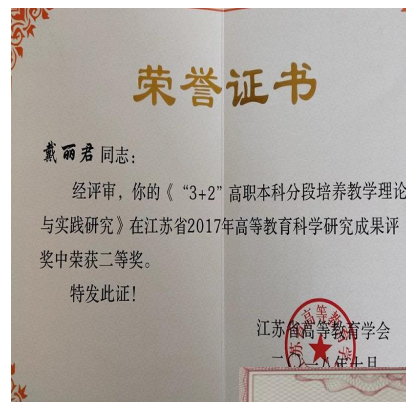 荣誉证书
戴丽君同志：
经评审，你的《“3+2”高职本科分段培养教学理论
与实践研究》在江苏省2017年高等教育科学研究成果评
奖中荣获二等奖。
特发此证！
江苏省高等教育学会
二〇一八年七月